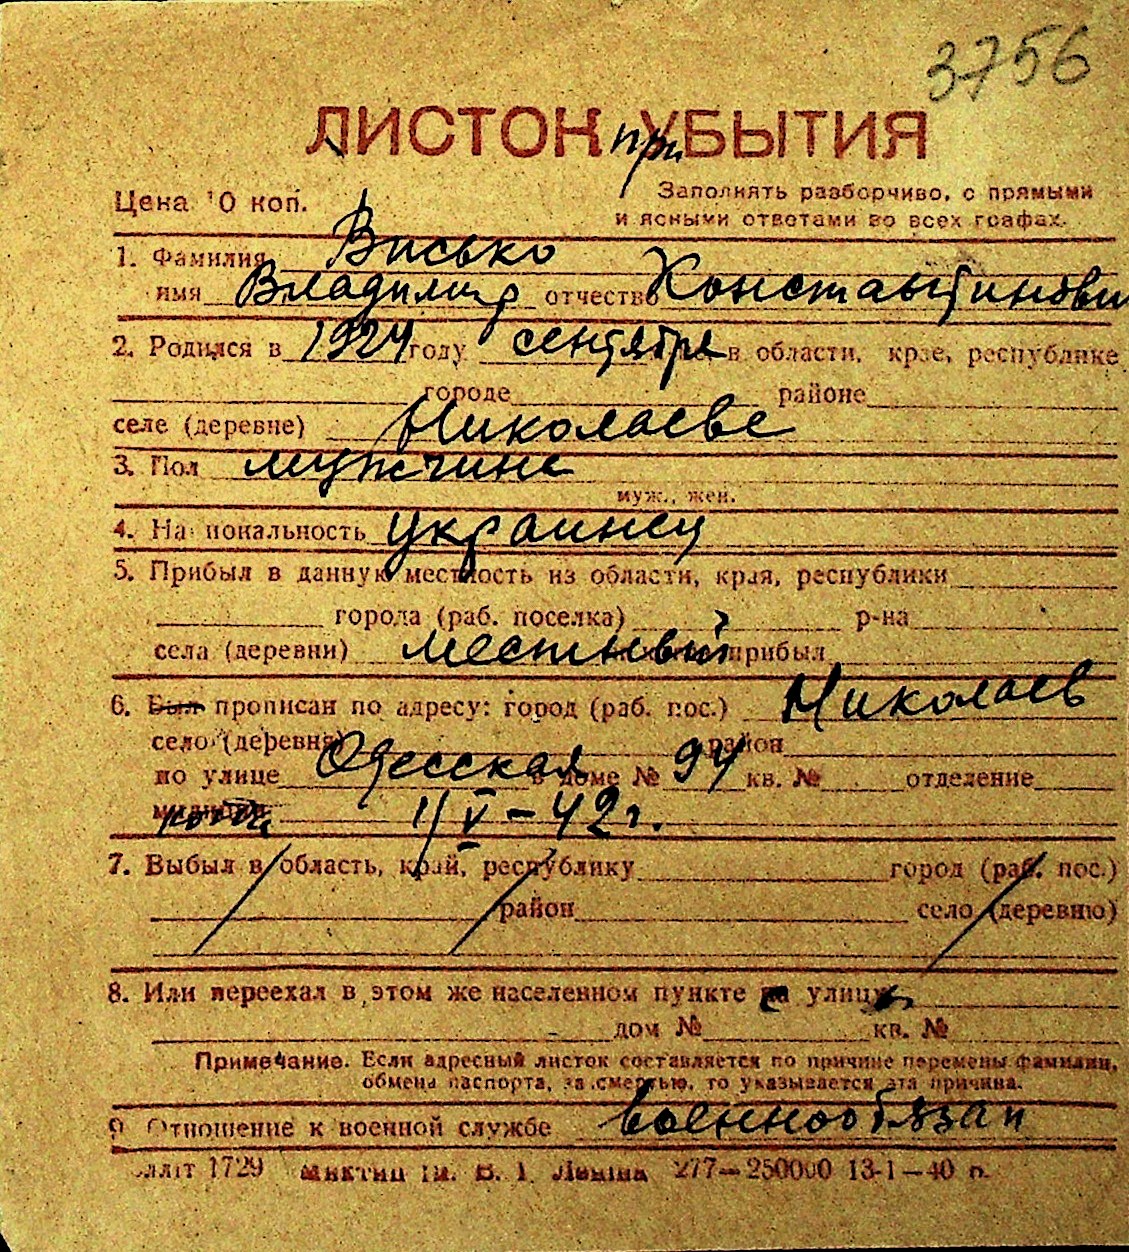 3756
ЛИСТОК при УБЫТИЯ
Цена 10 коп.
Заполнять разборчиво, с прямыми
и ясными ответами во всех графах.
1. Фамилия Висько
имя Владимир отчество Константинови
2. Родился в 1924 году сентября в области, крае, республике
городе районе
селе (деревне) Николаеве
3. Пол мужчина
муж., жен.
4. Национальность украинец
5. Прибыл в данную местность из области, края, республики
города (раб. поселка) р-на
села (деревни) местный прибыл
6. Был прописан по адресу: город (раб. пос.) Николаев
село (деревня) район
по улице Одесская в доме № 94 кв. № отделение
милиции 1/V-42 г.
7. Выбыл в область, край, республику город (раб. пос.)
район село (деревню)
8. Или переехал в этом же населенном пункте на улицу
дом № кв. №
Примечание. Если адресный листок составляется по причине перемены фамилии,
обмена паспорта, за смертью, то указывается эта причина.
9. Отношение к военной службе военнообязан
1729 277—250000 13-1—40 п.